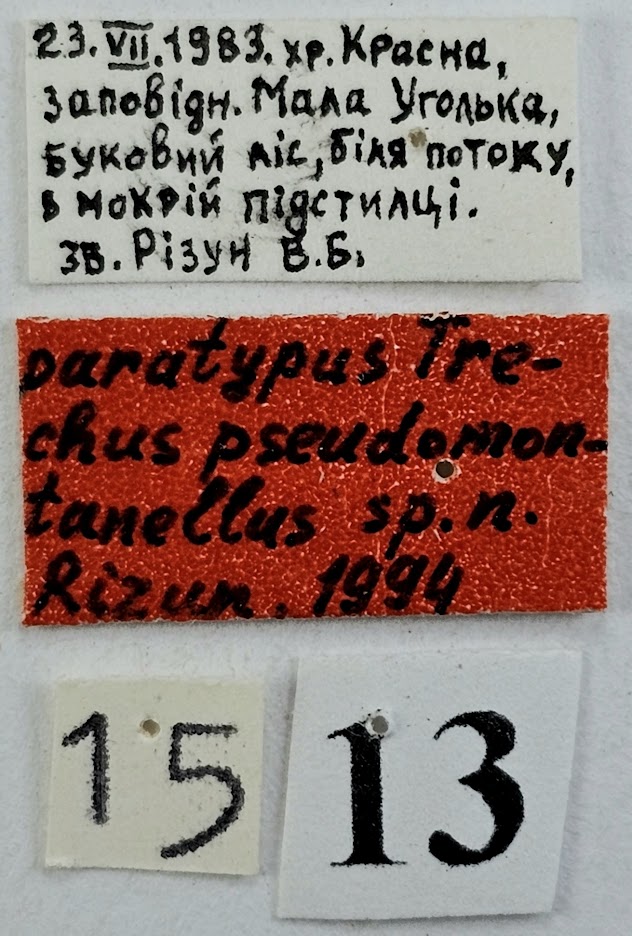 23.VII.1983. хр. Красна,
заповідн. Мала Уголька,
буковий ліс, біля потоку,
в мокрій підстилці.
зв. Різун В.Б.
paratypus Tre-
chus pseudomon-
tanellus sp. n.
Rizun, 1994
15
13